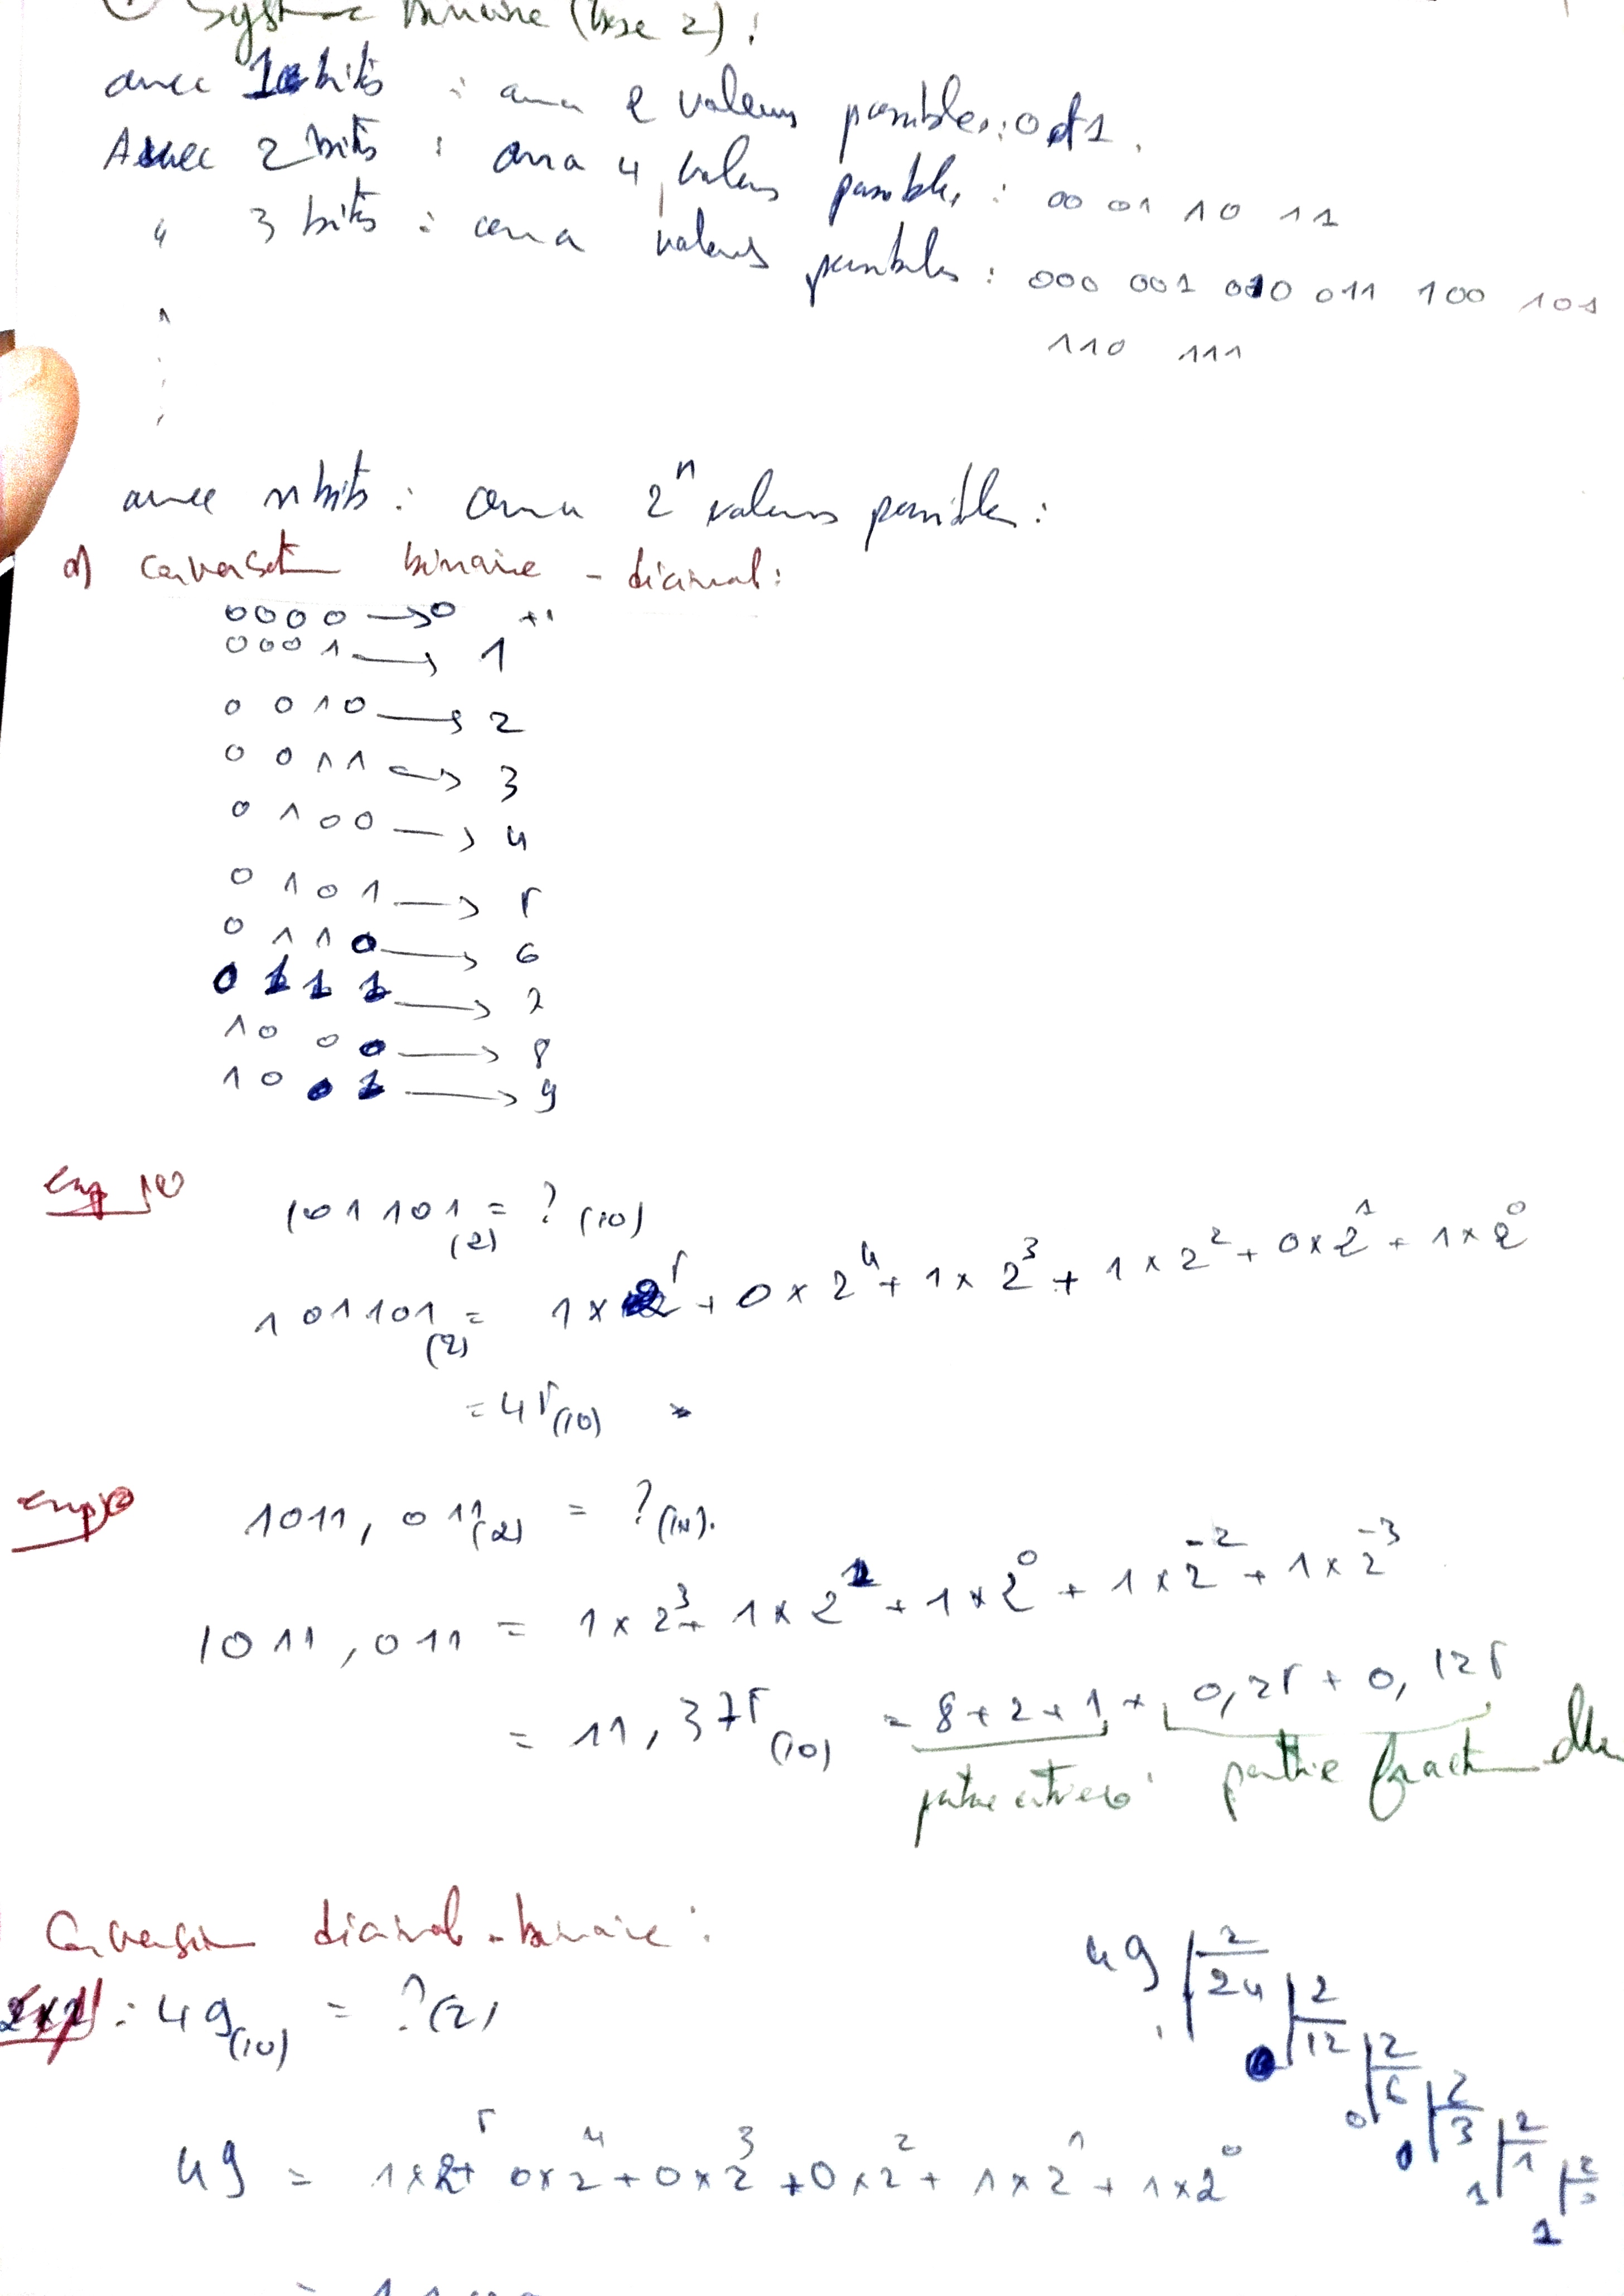 Système binaire (base 2) :
avec 1 bits : on a 2 valeurs possibles : 0 et 1.
Avec 2 bits : on a 4 valeurs possibles : 00 01 10 11
" 3 bits : on a valeurs possibles : 000 001 010 011 100 101
110 111
avec n bits : on a 2^n valeurs possibles :
a) conversion binaire - décimal :
0000 → 0
0001 → 1
0010 → 2
0011 → 3
0100 → 4
0101 → 5
0110 → 6
0111 → 7
1000 → 8
1001 → 9
101101(2) = ?(10)
101101(2) = 1×2^5 + 0×2^4 + 1×2^3 + 1×2^2 + 0×2^1 + 1×2^0
= 45(10)
1011,011(2) = ?(10).
1011,011 = 1×2^3 + 1×2^1 + 1×2^0 + 1×2^-2 + 1×2^-3
= 11,375(10) = 8+2+1 + 0,25 + 0,125
partie entière partie fractionnelle
Conversion décimal - binaire :
49 | 2
24 | 2
0 12 | 2
0 6 | 2
0 3 | 2
1 1 | 2
1
: 49(10) = ?(2)
49 = 1×2^5 + 0×2^4 + 0×2^3 + 0×2^2 + 1×2^1 + 1×2^0